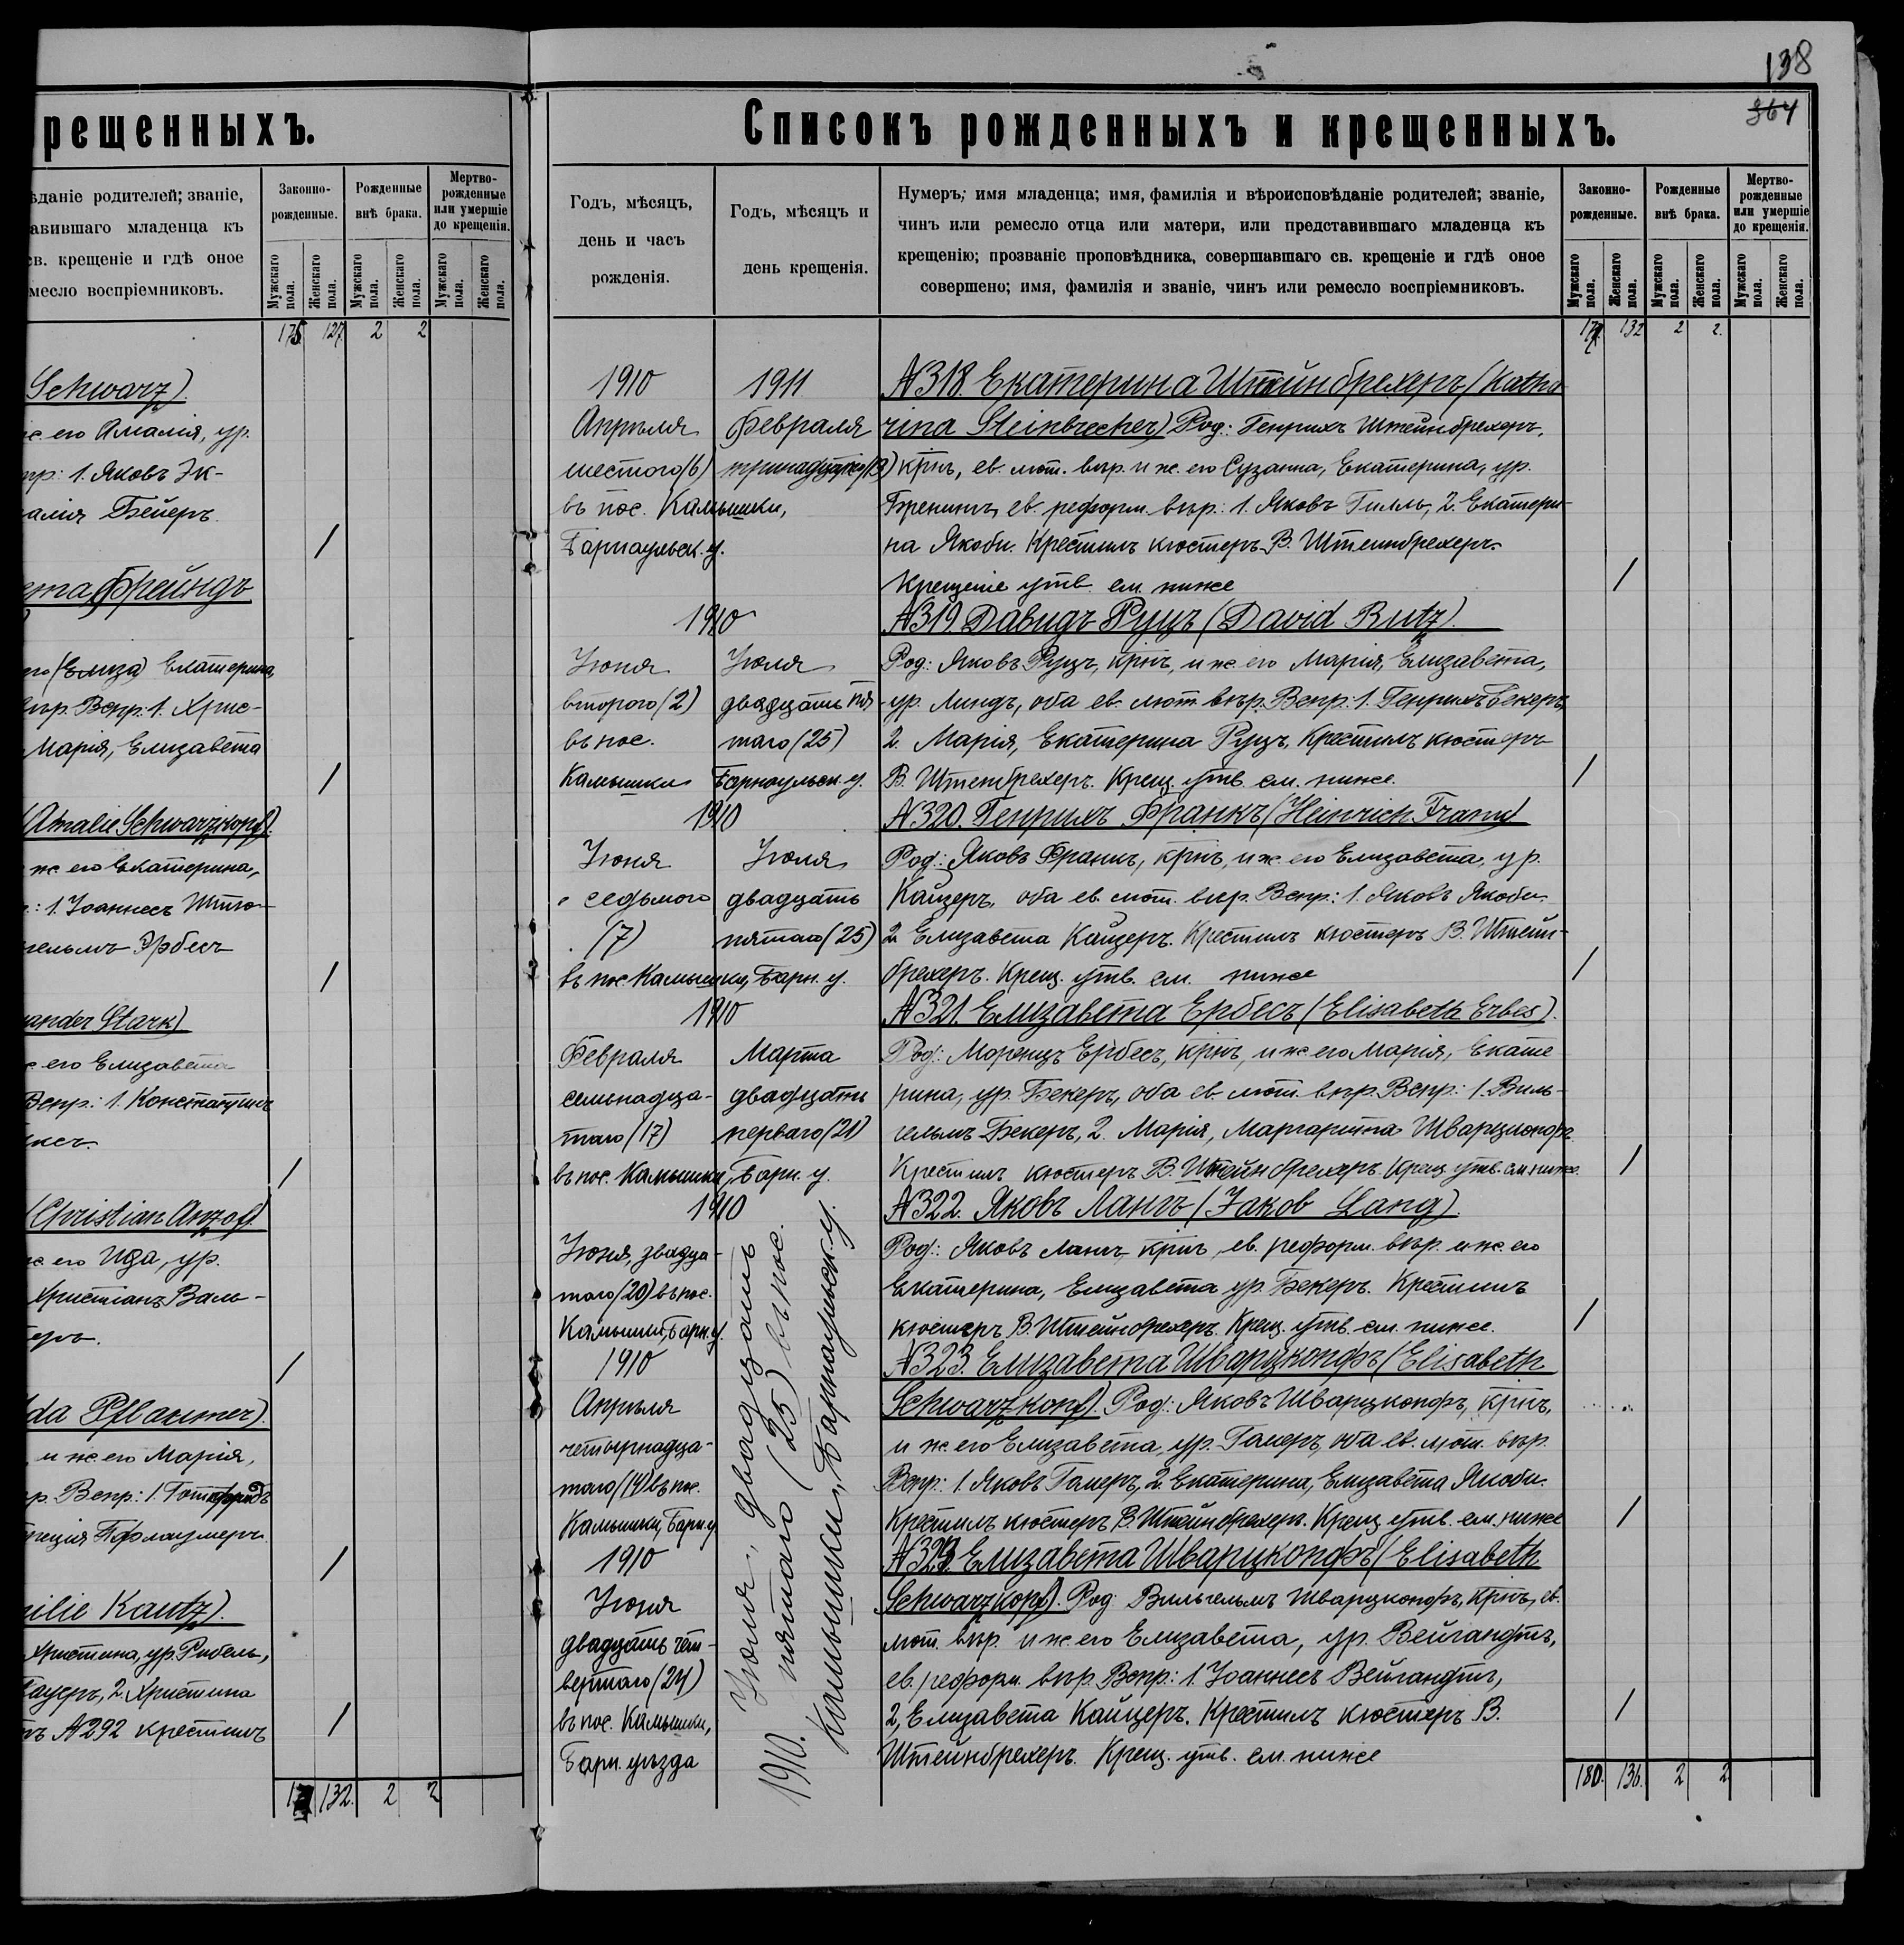 138
364
рещенныхъ.
ѣданіе родителей; званіе,
авившаго младенца къ
св. крещеніе и гдѣ оное
месло воспріемниковъ.
Законно-
рожденные.
Рожденные
внѣ брака.
Мертво-
рожденные
или умершіе
до крещенія.
Мужскаго пола.
Женскаго пола.
Мужскаго пола.
Женскаго пола.
Мужскаго пола.
Женскаго пола.
175 127 2 2
Schwarz).
же его Амалія, ур.
пр: 1. Яковъ Эк-
алія Бейеръ.
/
ета Фрейндъ
его (Елиза) Екатерина,
вѣр. Вспр: 1. Хрис-
Марія, Елизавета
/
(Amalie Schwarzkopf).
же его Екатерина,
: 1. Іоаннесъ Што-
гельмъ Эрбесъ
/
ander Stark)
е его Елизавета
Вспр: 1. Константинъ
/
(Christian Anzog).
же его Ида, ур.
Христіанъ Валь-
еръ.
/
da Pflaumer).
и же его Марія,
р. Вспр: 1. Готфридъ
Пфлаумеръ.
/
ilie Kautz).
Христина, ур. Рибель,
Бауеръ, 2. Христина
ъ №292 крестилъ
/
132. 2 2
Списокъ рожденныхъ и крещенныхъ.
Годъ, мѣсяцъ,
день и часъ
рожденія.
Годъ, мѣсяцъ и
день крещенія.
Нумеръ; имя младенца; имя, фамилія и вѣроисповѣданіе родителей; званіе,
чинъ или ремесло отца или матери, или представившаго младенца къ
крещенію; прозваніе проповѣдника, совершавшаго св. крещеніе и гдѣ оное
совершено; имя, фамилія и званіе, чинъ или ремесло воспріемниковъ.
Законно-
рожденные.
Рожденные
внѣ брака.
Мертво-
рожденные
или умершіе
до крещенія.
Мужскаго пола.
Женскаго пола.
Мужскаго пола.
Женскаго пола.
Мужскаго пола.
Женскаго пола.
177 132 2 2.
1910 1911 №318. Екатерина Штейнбрехеръ (Katha-
Апрѣля Февраля rina Steinbrecher) Род: Генрихъ Штейнбрехеръ,
шестого (6) тринадцатаго (13) крнъ, ев. лют. вѣр. и же. его Сузанна, Екатерина, ур.
въ пос. Камышки, Бренингъ, ев. реформ. вѣр.: 1. Яковъ Гилль, 2. Екатери-
Барнаульск. у. на Якоби. Крестилъ кюстеръ В. Штейнбрехеръ.
Крещеніе утв. см. ниже /
1910 №319. Давидъ Руцъ (David Rutz).
Іюня Іюля Род: Яковъ Руцъ, крнъ, и же его Марія, Елизавета,
второго (2) двадцать пя- ур. Линдъ, оба ев. лют. вѣр. Вспр: 1. Генрихъ Бекеръ,
въ пос. таго (25) 2. Марія, Екатерина Руцъ. Крестилъ кюстеръ
Камышки Барнаульск. у. В. Штенбрехеръ. Крещ. утв. см. ниже. /
1910 №320. Генрихъ Франкъ (Heinrich Frank)
Іюня Іюля Род: Яковъ Франкъ, крнъ, и же его Елизавета, ур.
седьмого двадцать Кайзеръ, оба ев. лют. вѣр. Вспр: 1. Яковъ Якоби
(7) пятаго (25) 2 Елизавета Кайзеръ. Крестилъ кюстеръ В. Штейн-
въ пос Камышки, Барн. у. брехеръ. Крещ. утв. см. ниже /
1910 №321. Елизавета Ербесъ (Elisabeth Erbes).
Февраля Марта Род: Моренцъ Ербесъ, крнъ, и же его Марія, Екате-
семьнадца- двадцать рина, ур. Бекеръ, оба ев. лют. вѣр. Вспр: 1. Виль-
таго (17) перваго (21) гельмъ Бекеръ, 2. Марія, Маргарита Шварцкопфъ.
въ пос. Камышки, Барн. у. Крестилъ кюстеръ В. Штейнбрехеръ. Крещ. утв. см. ниже. /
1910 №322. Яковъ Лангъ (Jakob Lang).
Іюня, двадца- Род: Яковъ Лангъ, крнъ, ев. реформ. вѣр. и же. его
таго (20) въ пос. Екатерина, Елизавета ур. Бекеръ. Крестилъ
Камышки, Барн. у. кюстеръ В. Штейнбрехеръ. Крещ. утв. см. ниже. /
1910 №323. Елизавета Шварцкопфъ (Elisabeth
Апрѣля Schwarzkopf). Род: Яковъ Шварцкопфъ, крнъ,
четырнадца- и же его Елизавета, ур. Галеръ, оба ев. лют. вѣр.
таго (14) въ пос. Вспр: 1. Яковъ Галеръ, 2. Екатерина, Елизавета Якоби.
Камышки, Барн. у Крестилъ кюстеръ В. Штейнбрехеръ. Крещ. утв. см. ниже /
1910 №324. Елизавета Шварцкопфъ (Elisabeth
Іюня Schwarzkopf). Род: Вильгельмъ Шварцкопфъ, крнъ, ев.
двадцать чет- лют. вѣр. и же его Елизавета, ур. Вейгандтъ,
вертаго (24) ев. реформ. вѣр. Вспр: 1. Іоаннесъ Вейгандтъ,
въ пос. Камышки, 2, Елизавета Кайцеръ. Крестилъ кюстеръ В. /
Барн. уѣзда Штейнбрехеръ. Крещ. утв. см. ниже
1910. Іюля, двадцать
пятаго (25) въ пос.
Камышки, Барнаульск. у.
180. 136. 2 2